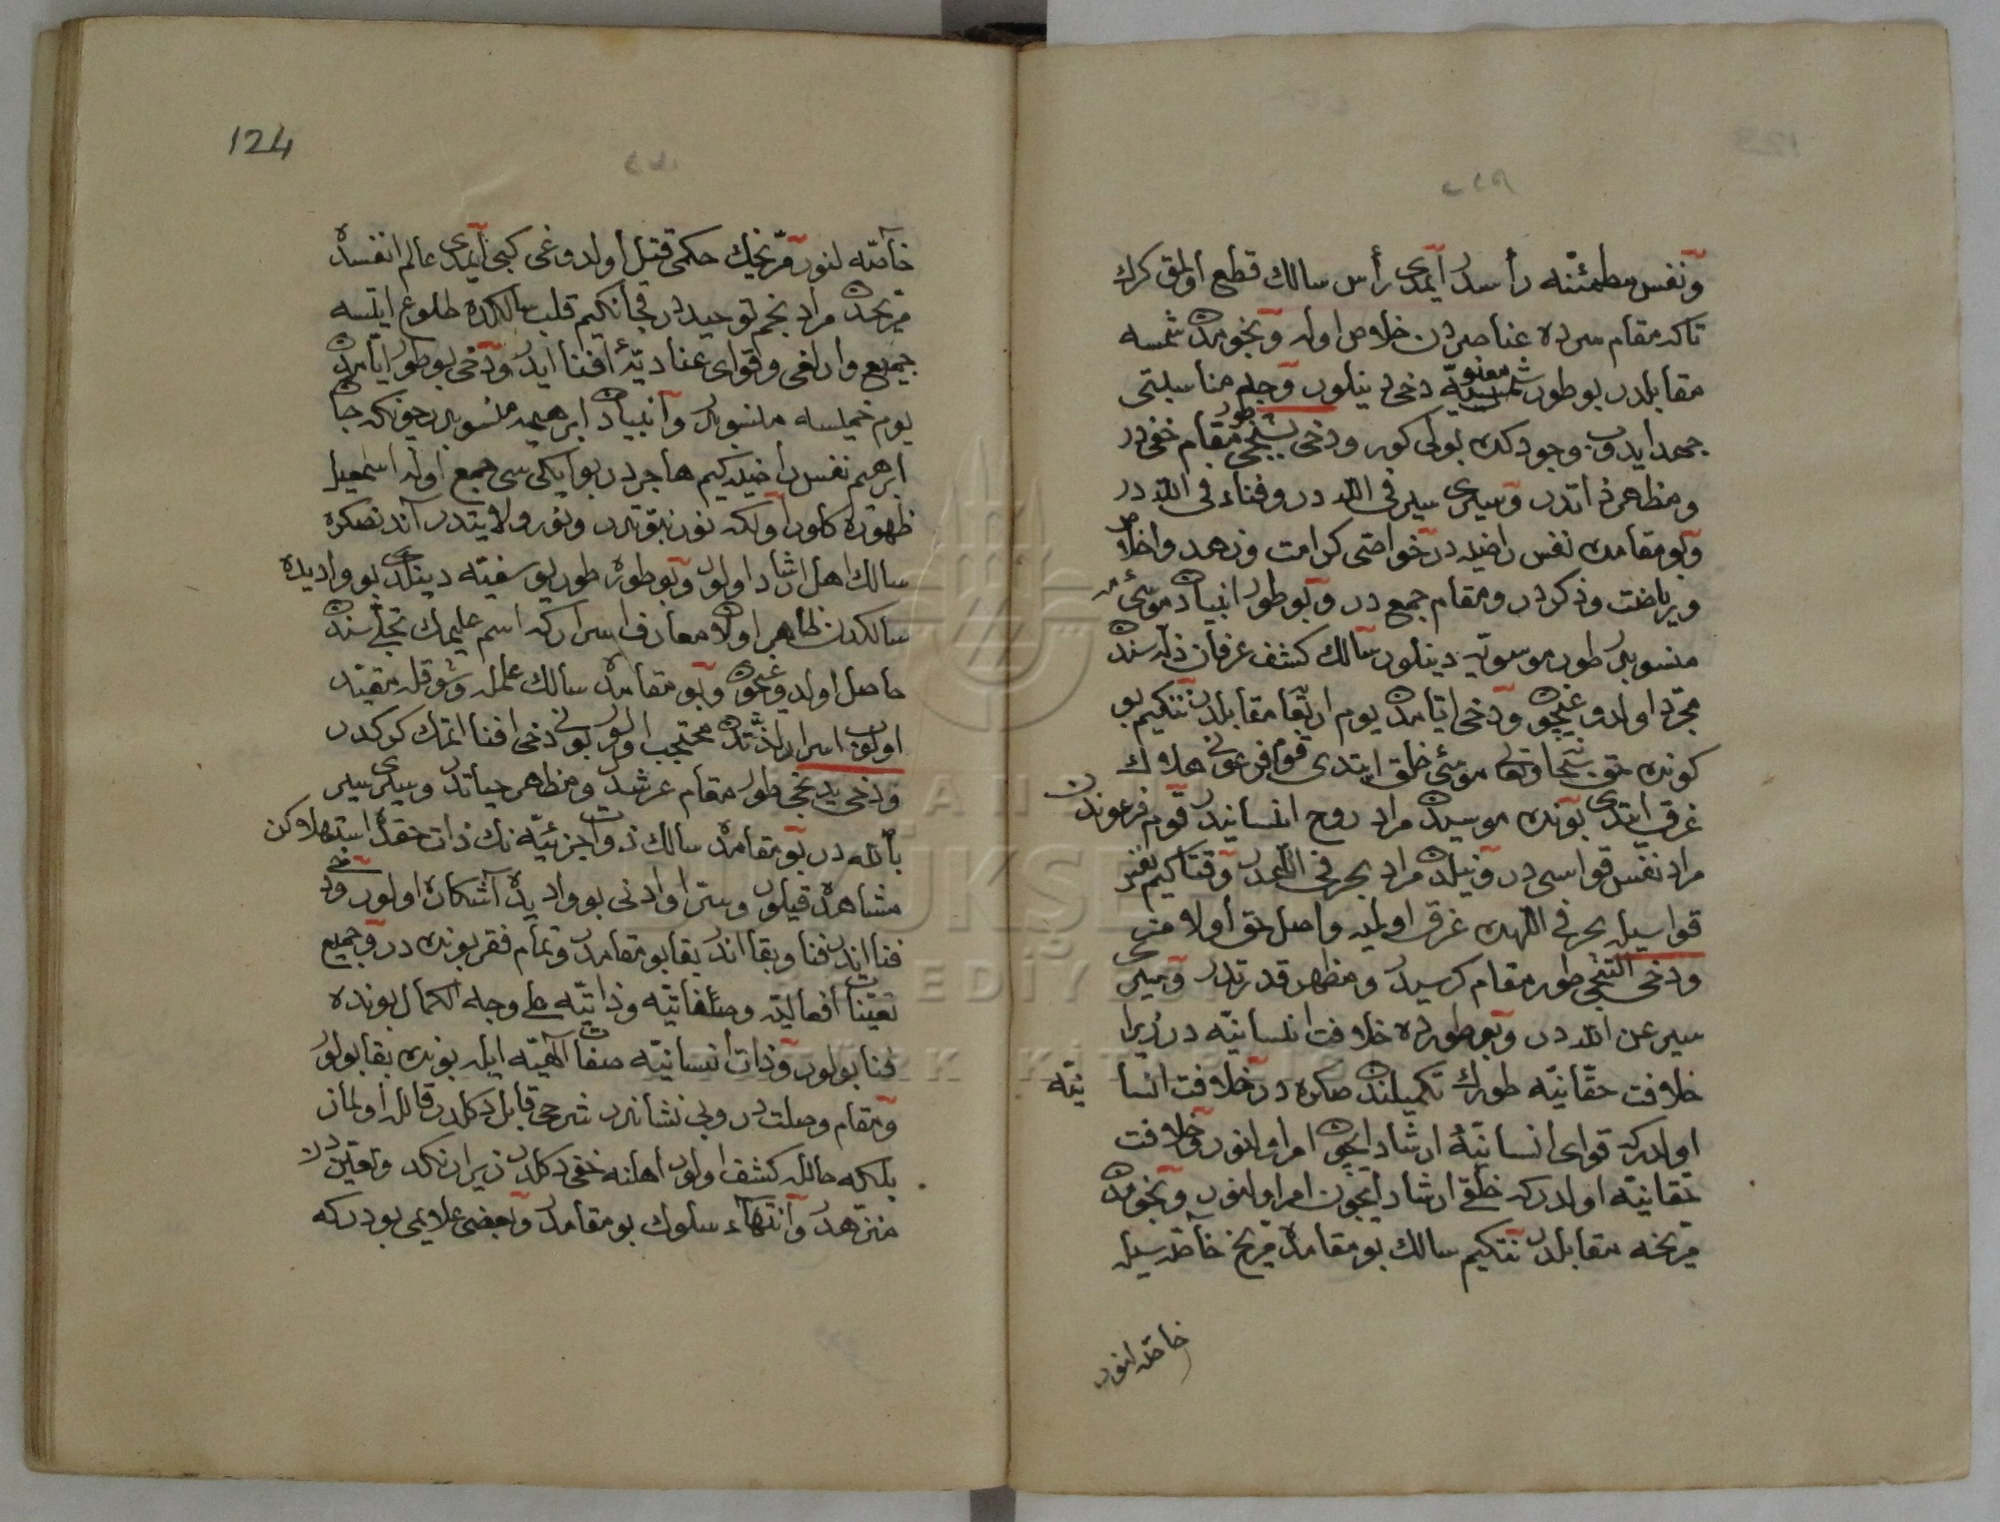 ونفس مطمئنّه رأسدر ايمدى رأس سالك قطع اولمق كرك
تاكه مقام سرده عناصردن خلاص اوله ونجومدن شمسه
مقابلدر بو طور شمسيّه معنويّه دخى دينلور وجله مناسبتى
جهد ايدوب وجودكده بولى كور ودخى بشنجى طور مقام خفى در
ومظهر ذاتدر وسيرى سير فى اللّه در وفناء فى اللّه در
وبو مقامده نفس راضيه در خواصى كرامت وزهد واخلاص
ورياضت وذكردر ومقام جمع در وبو طور انبيادن موسى
منسوبدر طور موسويّه دينلور سالك كشف عرفان ذاله سنده
مجرّد اولدوغيچون ودخى ايّامدن يوم اربعا مقابلدر نتكيم بو
كونده حق سبحانه وتعالى موسى خلق ايتدى قوم فرعونى هلاك
غرق ايتدى بونده موسيدن مراد روح انسانيدر قوم فرعوندن
مراد نفس قواسى در ونيلدن مراد بحر فى اللّهدر وقتاكيم نفس
قواسيله بحر فى اللّهده غرق اوليه واصل حق اولامز
ودخى التنجى طور مقام كرسيدر ومظهر قدرتدر وسيرى
سير عن اللّه در وبو طورده خلافت انسانيّه در زيرا
خلافت حقّانيّه طورك تكميلندن صكره در خلافت انسا نيّه
اولدركه قواى انسانيّه ارشاد ايچون امر اولنور وخلافت
حقّانيّه اولدركه خلقى ارشاد ايچون امر اولنور ونجومدن
مرّيخه مقابلدر نتكيم سالك بو مقامده مرّيخ خاصّه سيله
خاصّه لنور
124
خاصّه لنور مرّيخك حكمى قتل اولدوغى كبى ايمدى عالم انفسده
مرّيخدن مراد نجم توحيددر قچانكيم قلب سالكده طلوع ايلسه
جميع وارلغى وقواى عناديّه افنا ايدر ودخى بو طور ايّامدن
يوم خميسه منسوبدر وانبيادن ابرهيمه منسوبدر چونكه جان
ابرهيم نفس راضيه كيم هاجردر بو ايكى سى جمع اوله اسمعيل
ظهوره كلور اولكه نور نبوّتدر ونور ولايتدر آندنصكره
سالك اهل ارشاد اولور وبو طوره طور يوسفيّه دينلدى بو واديده
سالكدن ظاهر اولان معارف اسراركه اسم عليمك تجلّىسنده
حاصل اولدوغيچون وبو مقامده سالك علمله وشوقله مقيّد
اولوب اسرار لذّتنده محتجب اولور بونى دخى افنا اتمك كركدر
ودخى يدنجى طور مقام عرشدر ومظهر حياتدر وسيرى سير
باللّه در بو مقامده سالك ذوات جزئيّه نك ذات حقده استهلاكن
مشاهده قيلور وسرّ او ادنى بو واديده آشكاره اولور ودخى
فنا ايدر فنا وبقا اندر بقا بو مقامدر وتمام فقر بونده در وجميع
تعيّنات افعاليّه وصفاتيّه وذاتيّه على وجه الكمال بونده
فنا بولور وذات انسانيّه صفات الهيّه ايله بونده بقا بولور
ومقام وصلت در وبى نشاندر شرحى قابل دكلدر قالله اولماز
بلكه حالله كشف اولور اهلنه خفى دكلدر زيرا رنكدن وتعيّندن
منزّهدر وانتهاء سلوك بو مقامدر وبعضى علايمى بودركه